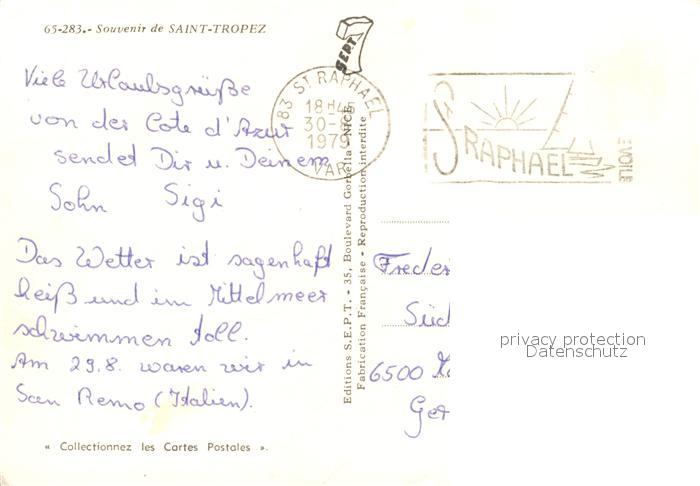 65-283.- Souvenir de SAINT-TROPEZ
SEPT
Viele Urlaubsgrüße
von der Cote d'Azur
sendet Dir u. Deinem
Sohn Sigi
Das Wetter ist sagenhaft
heiß und im Mittelmeer
schwimmen toll.
Am 29.8. waren wir in
San Remo (Italien).
« Collectionnez les Cartes Postales ».
83 ST RAPHAEL
18H45
30-
1979
VAR
ST RAPHAEL
VOILE
Editions S.E.P.T. - 35, Boulevard Gorbella - NICE
Fabrication Française - Reproduction interdite
Freder
Süd
6500
Ger
privacy protection
Datenschutz